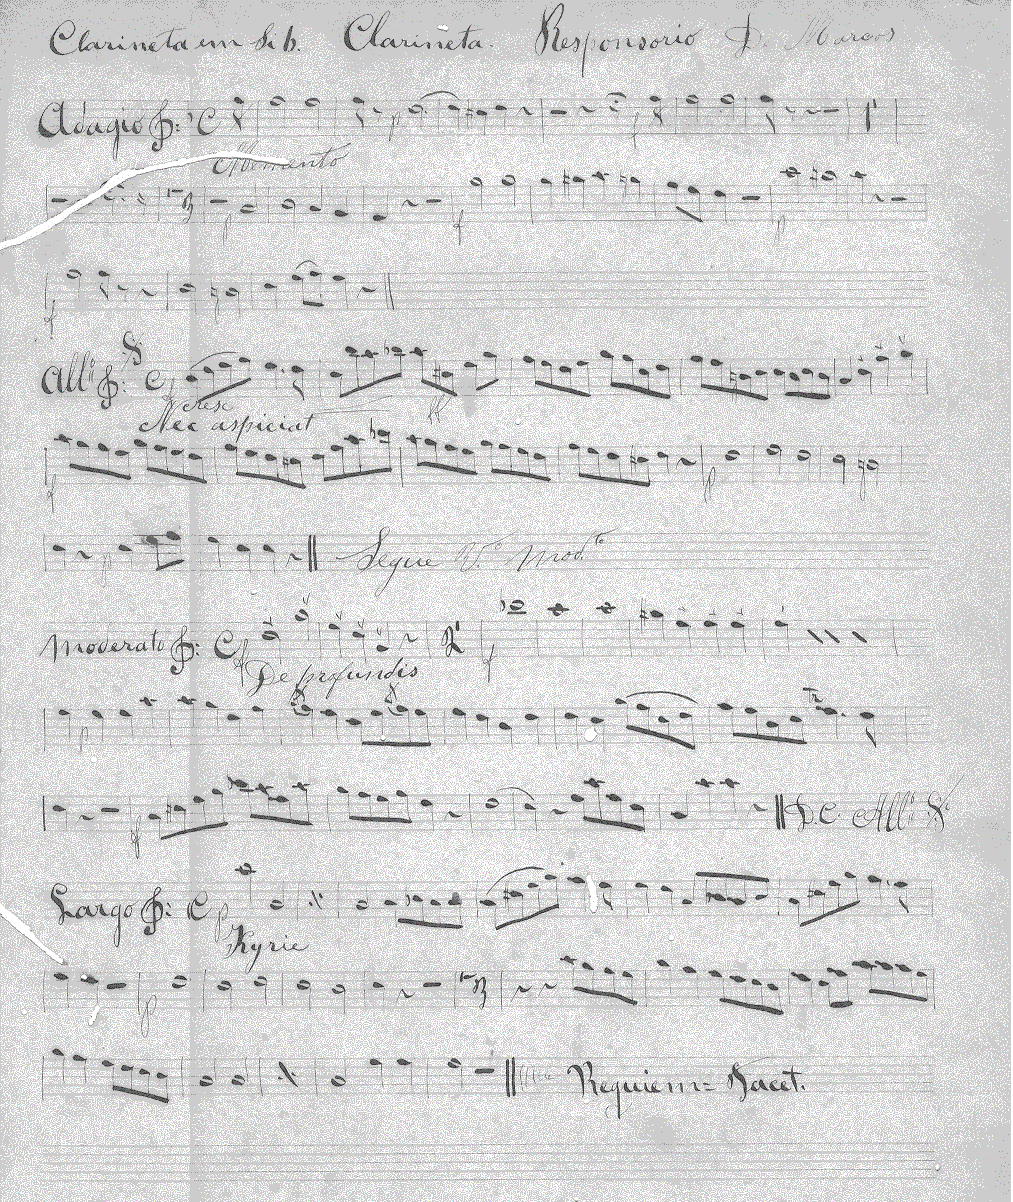 Clarineta em Si b. Clarineta. Responsorio D. Marcos
Adagio C
Memento
All.º C
cresc
Nec aspiciat
ff
Segue V.º Mod.to
Moderato C
De profundis
D.C. All.º
Largo C p
Kyrie
Requiem = Tacet.